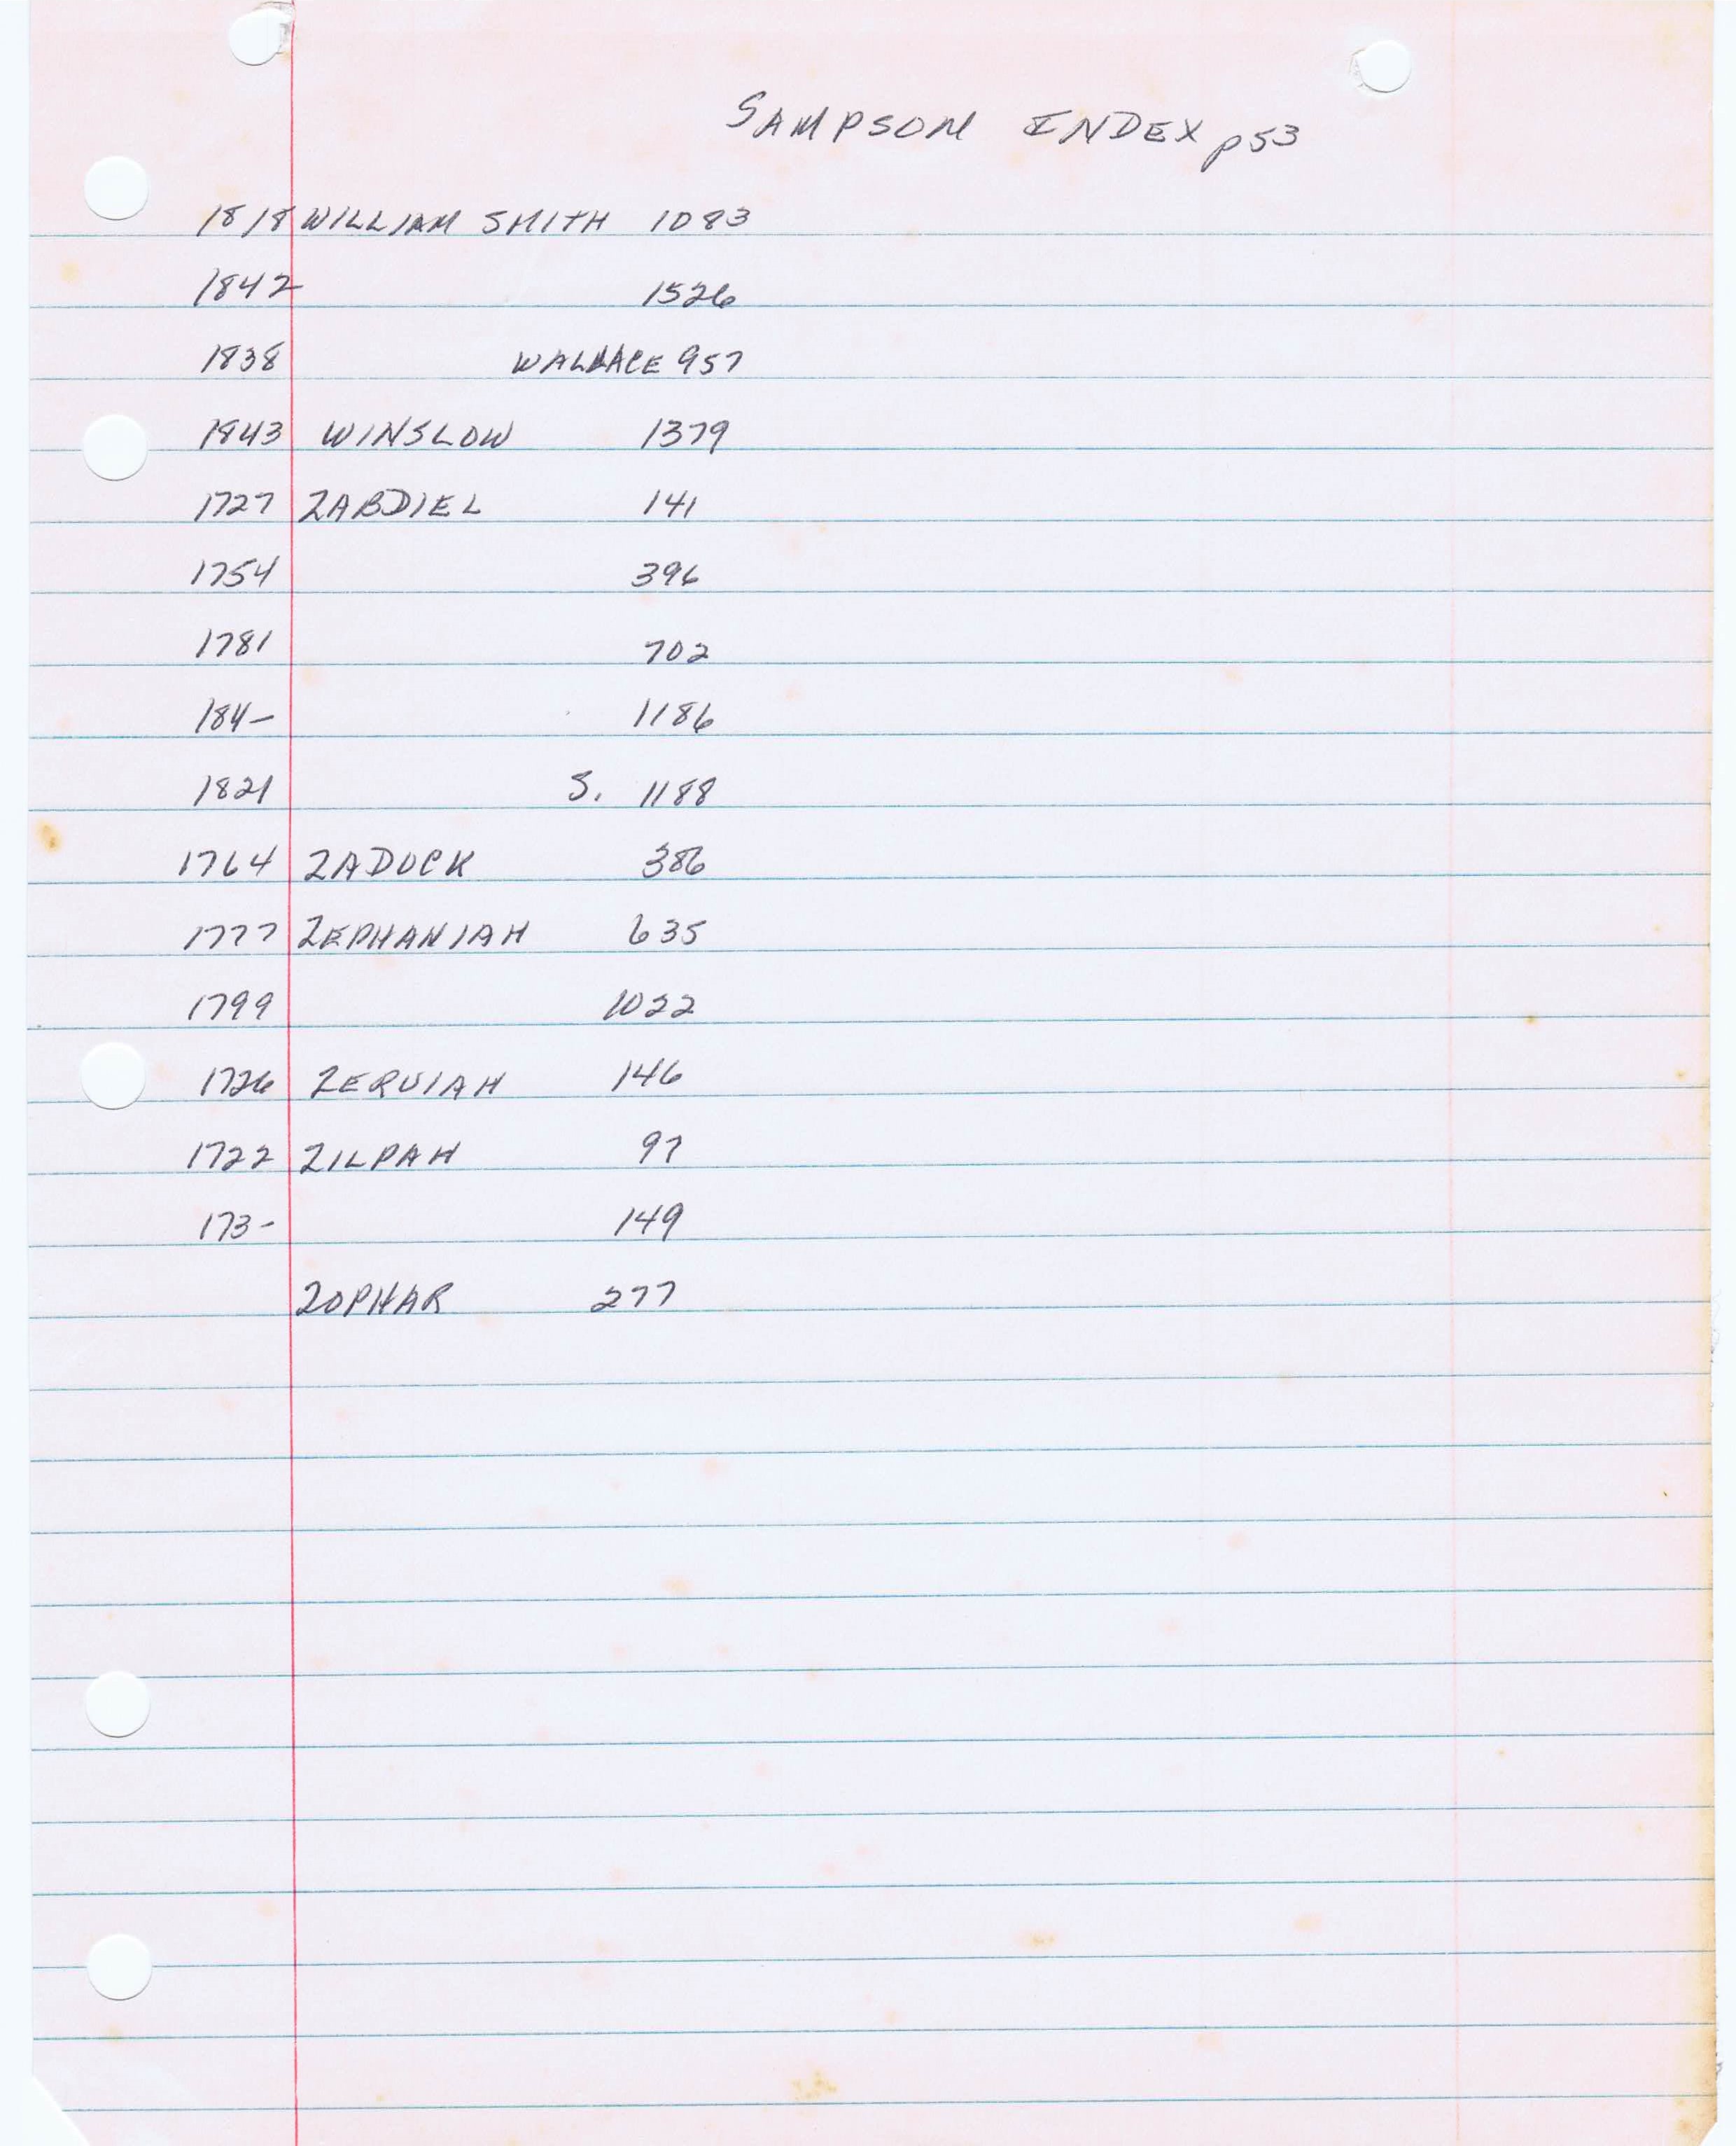 SAMPSON INDEX p53
1818 WILLIAM SMITH 1083
1842 1526
1838 WALLACE 957
1843 WINSLOW 1379
1727 ZABDIEL 141
1754 396
1781 702
184- 1186
1821 S. 1188
1764 ZADOCK 386
1777 ZEPHANIAH 635
1799 1022
1726 ZERUIAH 146
1722 ZILPAH 97
173- 149
ZOPHAR 277